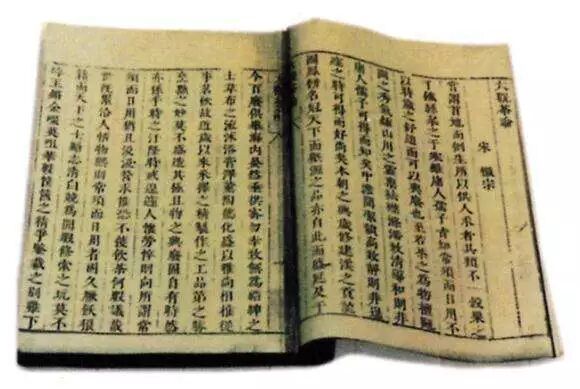 大觀茶論
宋 徽宗
嘗謂首地而倒生所以供人求者其類不一穀粟之
于饑絲枲之于寒雖庸人孺子皆知常須而日用不
以時歲之舒迫而可以興廢也至若茶之為物擅甌
閩之秀氣鍾山川之靈稟祛襟滌滯致清導和則非
庸人孺子可得而知矣沖澹簡潔韻高致靜則非遑
遽之時可得而好尚矣本朝之興歲修建溪之貢龍
團鳳餅名冠天下而壑源之品亦自此而盛延及于
今百廢俱舉海內晏然垂拱密勿幸致無為縉紳之
士韋布之流沐浴膏澤薰陶德化盛以雅尚相推從
事茗飲故近歲以來采擇之精製作之工品第之勝
烹點之妙莫不盛造其極且物之興廢固自有時然
亦係乎時之汙隆時或遑遽人懷勞悴則向所謂常
須而日用猶且汲汲營求惟恐不獲飲茶何暇議哉
世既累洽人恬物熙則常須而日用者固久厭飫狼
籍而天下之士勵志清白競為閒暇修索之玩莫不
碎玉鏘金啜英咀華較筐篋之精爭鑒裁之別雖下